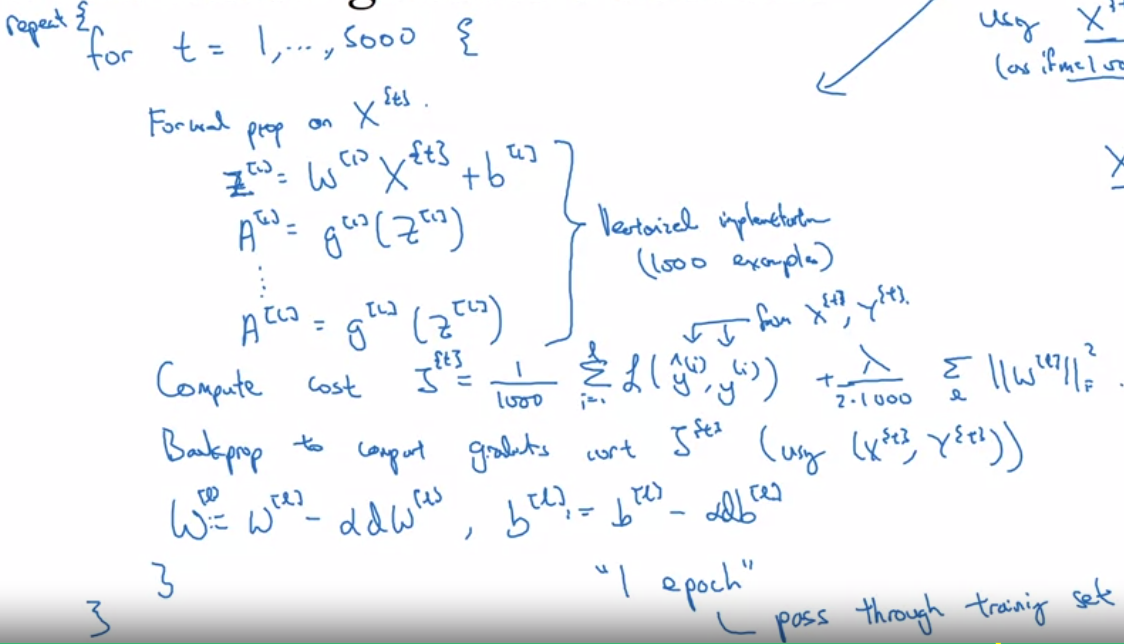 repeat {
for t = 1, ..., 5000 {
Forward prop on X^{t}.
Z^[1] = W^[1] X^{t} + b^[1]
A^[1] = g^[1](Z^[1])
⋮
A^[L] = g^[L](Z^[L])
Vectorized implementation
(1000 examples)
using X^{t}
(as if m=1000
X
from X^{t}, Y^{t}.
Compute cost J^{t} = 1/1000 Σ_{i=1}^{l} L(ŷ^(i), y^(i)) + λ/(2·1000) Σ_l ||W^[l]||_F^2.
Backprop to compute gradients wrt J^{t} (using (X^{t}, Y^{t}))
W^[l] := W^[l] - αdW^[l], b^[l] := b^[l] - αdb^[l]
}
}
"1 epoch"
pass through training set